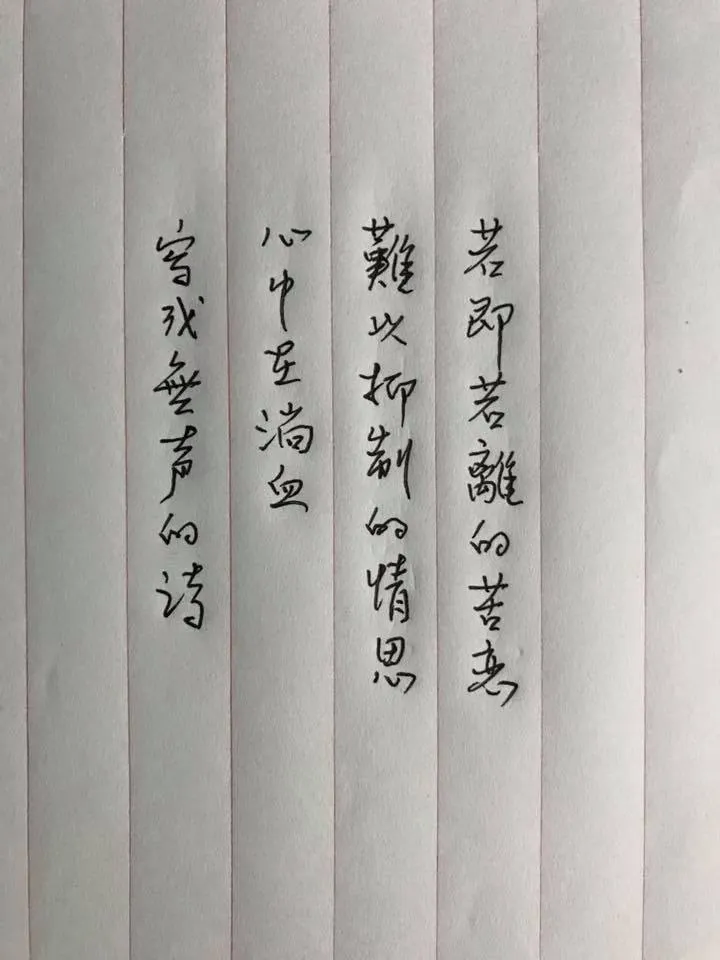 若即若離的苦恋
難以抑制的情思
心中在淌血
写成無声的诗